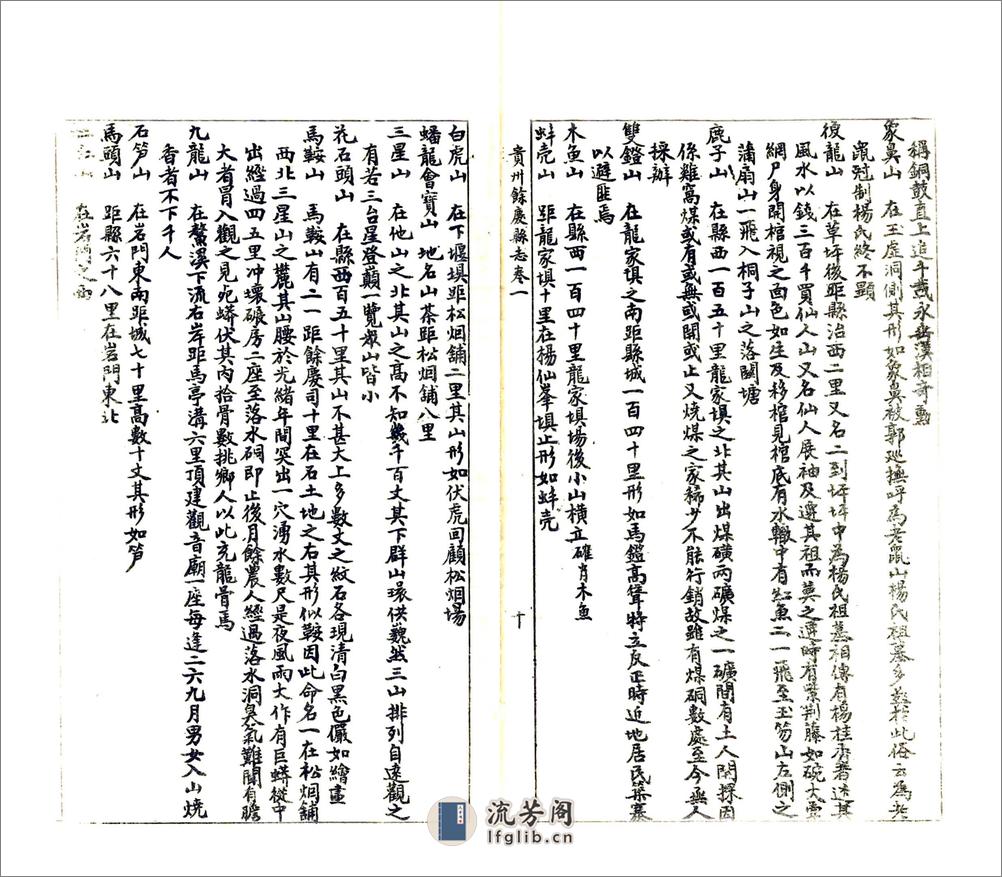 稱銅鼓直上追千載永留漢相奇勲
象鼻山 在玉虛洞側其形如象鼻被郭巡撫呼為老鼠山楊氏祖墓多葬於此俗云為老
鼠冠制楊氏終不顯
後龍山 在草坪後距縣治西二里又名二到坪坪中為楊氏祖墓相傳有楊桂秀者迷其
風水以錢三百千買仙人山又名仙人展袖及遷其祖而葬之遷時有紫荆藤如碗大雲
網尸身開棺視之面色如生及移棺見棺底有水轍中有紅魚二一飛至玉笏山左側之
蒲扇山一飛入桐子山之落闕塘
鹿子山 在縣西一百五十里龍家垻之北其山出煤磺兩礦煤之一礦間有土人開採因
係雞窩煤或有或無或開或止又燒煤之家稀少不能行銷故雖有煤硐數處至今無人
採辦
雙鐙山 在龍家垻之南距縣城一百四十里形如馬鐙高聳特立反正時近地居民築寨
以避匪焉
木魚山 在縣西一百四十里龍家垻場後小山橫立確肖木魚
蚌壳山 距龍家垻十里在楊仙峯垻止形如蚌壳
貴州餘慶縣志卷一
十
白虎山 在下堰垻距松烟舖二里其山形如伏虎回顧松烟場
蟠龍會寶山 地名山茶距松烟舖八里
三星山 在他山之北其山之高不知幾千百丈其下群山環供巍然三山排列自遠觀之
有若三台星登巔一覽衆山皆小
花石頭山 在縣西百五十里其山不甚大上多數丈之紋石各現清白黑色儼如繪畫
馬鞍山 馬鞍山有二一距餘慶司十里在石土地之右其形似鞍因此命名一在松烟舖
西北三星山之麓其山腰於光緒年間突出一穴湧水數尺是夜風雨大作有巨蟒從中
出經過四五里冲壞碾房二座至落水硐即止後月餘農人經過落水洞臭氣難聞有膽
大者冒入觀之見死蟒伏其內拾骨數挑鄉人以此充龍骨焉
九龍山 在鰲溪下流右岸距馬亭溝六里頂建觀音廟一座每逢二六九月男女入山燒
香者不下千人
石笋山 在岩門東南距城七十里高數十丈其形如笋
馬頭山 距縣六十八里在岩門東北
在岩門之
流芳阁
lfglib.cn